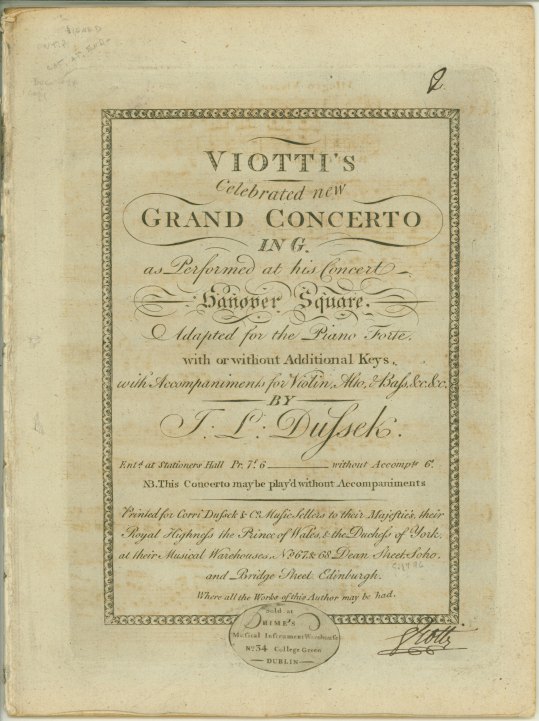 SIGNED
2
VIOTTI'S
Celebrated new
GRAND CONCERTO
IN G.
as Performed at his Concert
Hanover Square.
Adapted for the Piano Forte.
with or without Additional Keys,
with Accompaniments for Violin, Alto, & Bass, &c. &c.
BY
J. L. Dussek.
Entd. at Stationers Hall Pr. 7s. 6 without Accompts 6s.
NB. This Concerto may be play'd without Accompaniments
Printed for Corri Dussek & Co. Music Sellers to their Majesties, their
Royal Highness the Prince of Wales, & the Duchess of York.
at their Musical Warehouses, No. 67 & 68 Dean Street Soho.
and Bridge Street Edinburgh.
Where all the Works of this Author may be had.
Sold at
HIME'S
Musical Instrument Warehouse
No. 34 College Green
DUBLIN